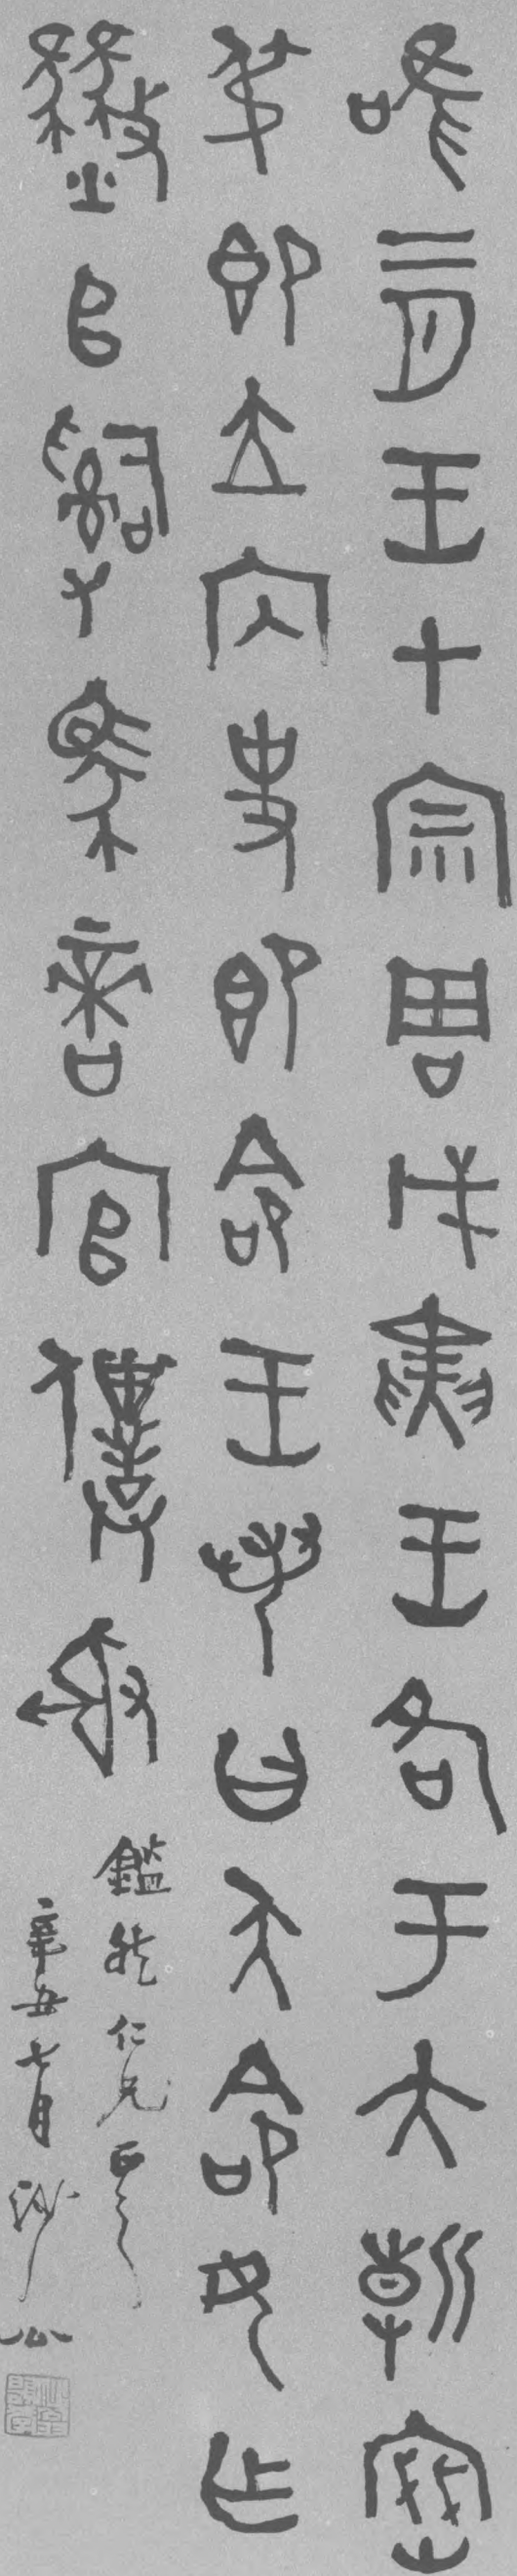 唯三月王才宗周戊寅王各于大朝密
叔即立內史即命王若曰命女乍
豳𠂤𤔲馬啻官僕射
鑑仁兄正之
辛丑七月沙公